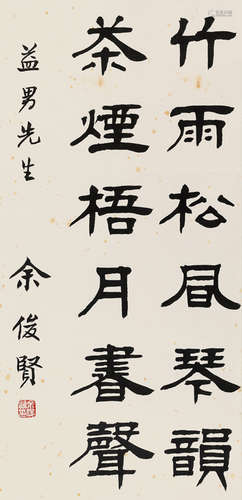 竹雨松風琴韻
茶煙梧月書聲
益男先生
余俊賢